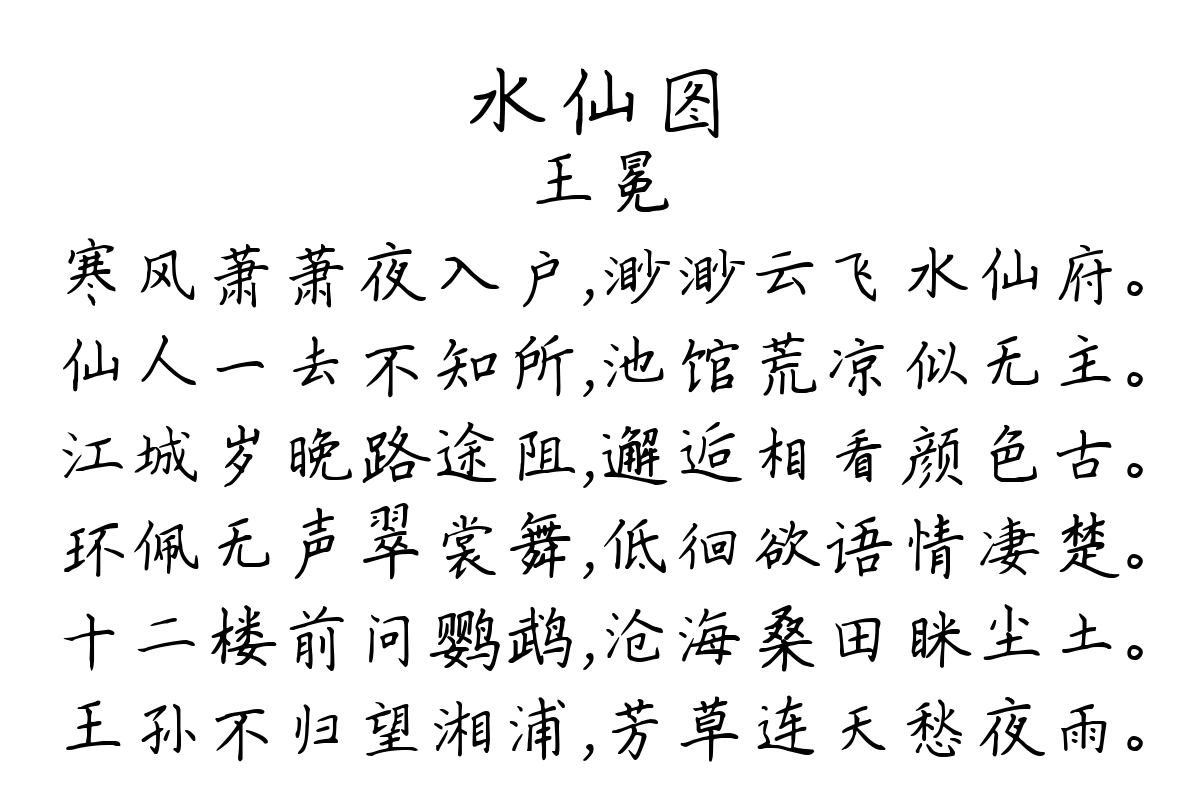 水仙图
王冕
寒风萧萧夜入户,渺渺云飞水仙府。
仙人一去不知所,池馆荒凉似无主。
江城岁晚路途阻,邂逅相看颜色古。
环佩无声翠裳舞,低徊欲语情凄楚。
十二楼前问鹦鹉,沧海桑田眯尘土。
王孙不归望湘浦,芳草连天愁夜雨。